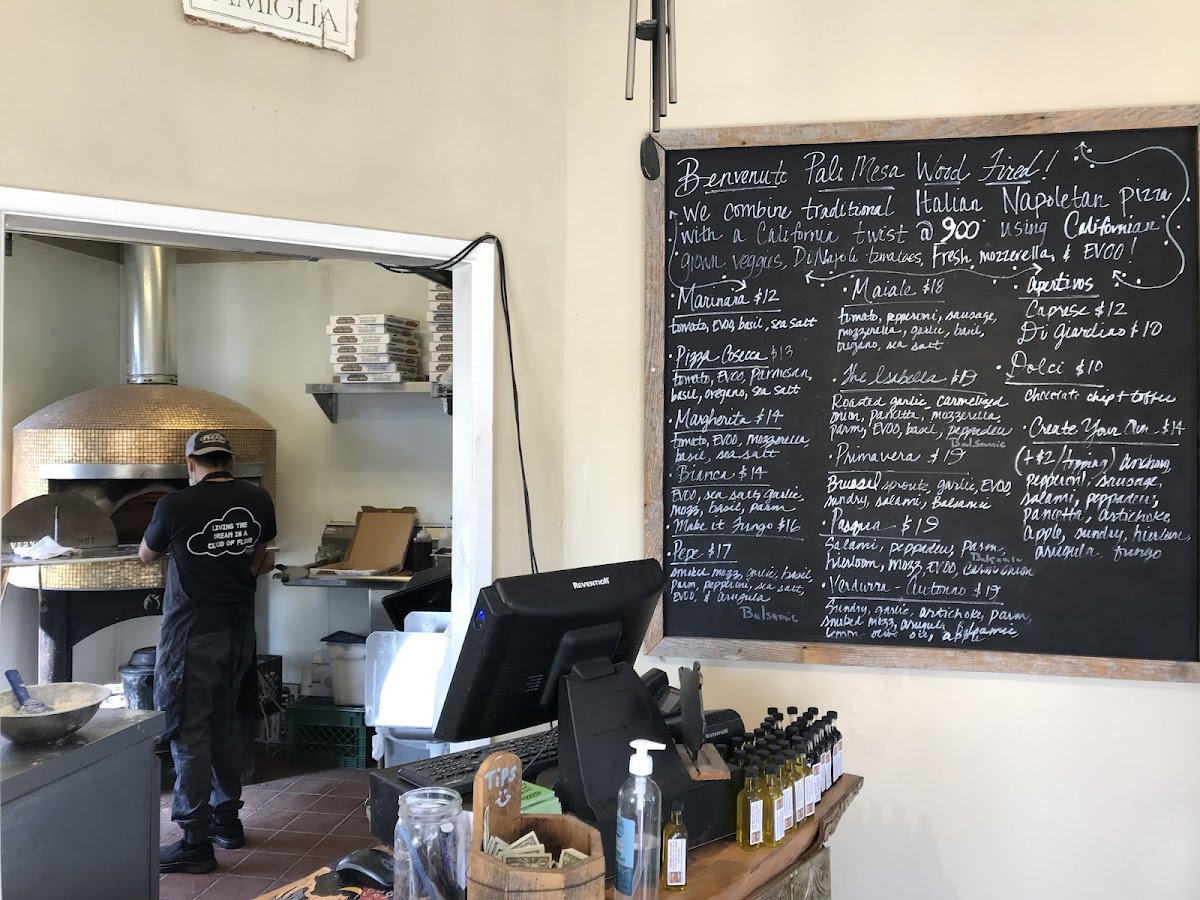 FAMIGLIA
Benvenuto Pali Mesa Wood Fired!
We combine traditional Italian Napoletan Pizza
with a California twist @ 900 using Californian
grown veggies, Di Napoli tomatoes, Fresh mozzerella, & EVOO!
· Marinara $12
tomato, EVOO, basil, sea salt
· Pizza Cosecca $13
tomato, EVOO, Parmesan,
basil, oregano, sea salt
· Margherita $14
tomato, EVOO, mozzerella
basil, sea salt
· Bianca $14
EVOO, sea salt, garlic,
mozz, basil, parm
· Make it Fungo $16
· Pepe $17
smoked mozz, garlic, basil,
Parm, pepperoni, sea salt,
EVOO, & arugula
Balsamic
· Maiale $18
tomato, pepperoni, sausage,
mozzerella, garlic, basil,
oregano, sea salt
· The Isabella $19
Roasted garlic, carmelized
onion, pancetta, mozzerella
parm, EVOO, basil, peppadew
Balsamic
· Primavera $19
Brussel sprouts, garlic, EVOO,
sundry, salami, Balsamic
· Pasqua $19
Salami, peppadew, Parm,
Balsamic
heirloom, mozz, EVOO, carm onion
· Verdurra - Autonno $19
Sundry, garlic, artichoke, parm,
smoked mozz, arugula, Balsamic
lemon olive oil, apple
· Apertivos
Caprese $12
Di Giardino $10
· Dolci $10
Chocolate chip + toffee
· Create Your Own $14
(+$2/topping) anchovy,
pepperoni, sausage,
salami, peppadew,
pancetta, artichoke
apple, sundry, heirloom,
arugula, fungo
LIVING THE
DREAM IN A
CLOUD OF FLOUR
VERY HOT
REVENTION
REVENTION
Tips